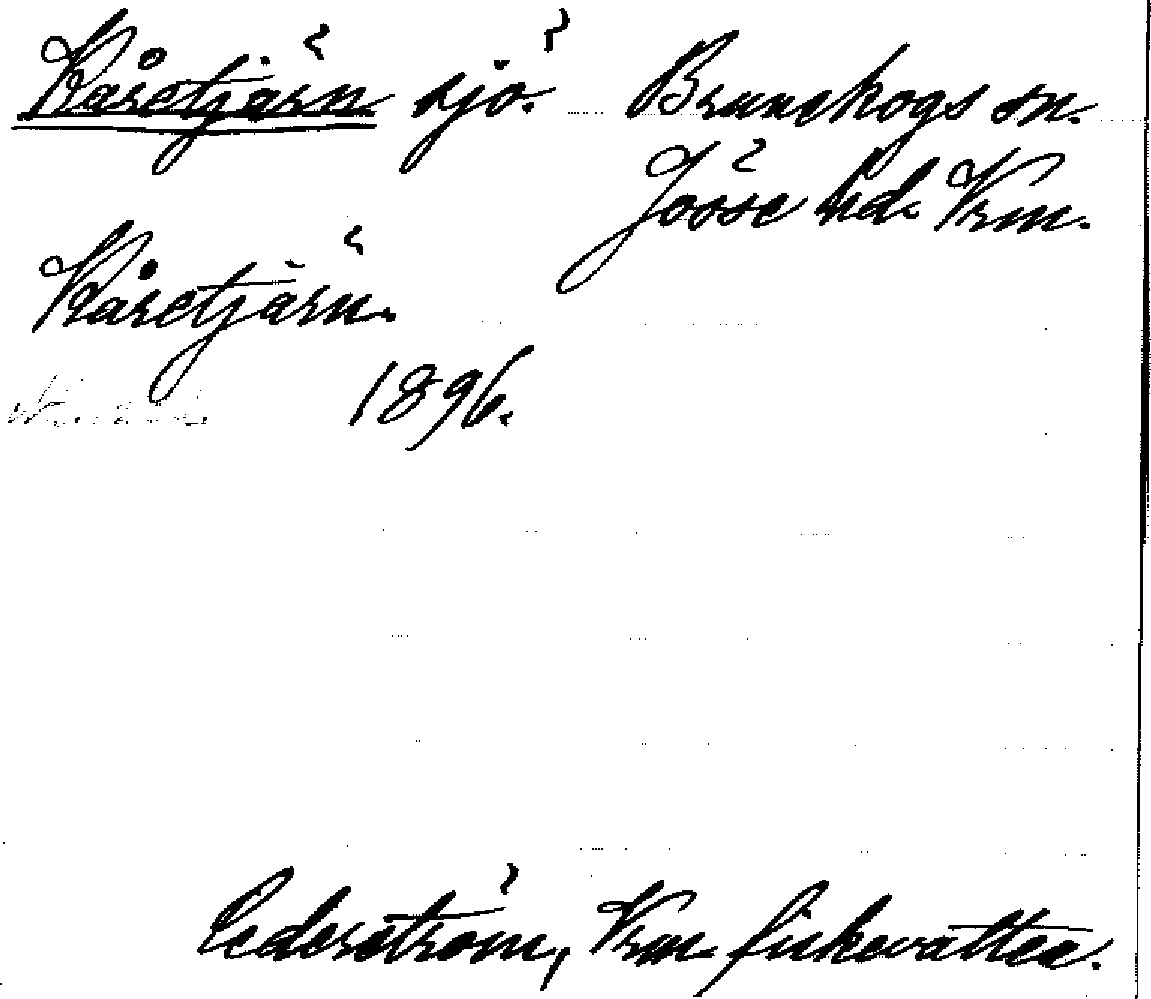 Kåretjärn sjö. Brunskogs sn.
Jösse hd. Vrm.
Kåretjärn.
1896.
Cederström, Vrm. fiskevatten.